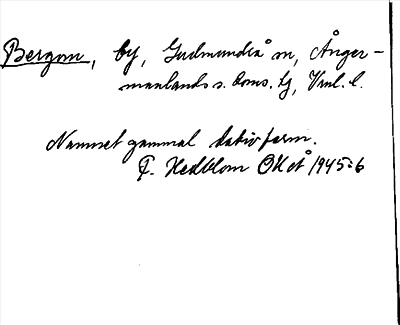 Bergom, by, Gudmundrå sn, Ånger-
manlands s. doms. tg, Vnl. l.
Namnet gammal dativform.
F. Hedblom OUÅ 1945:6